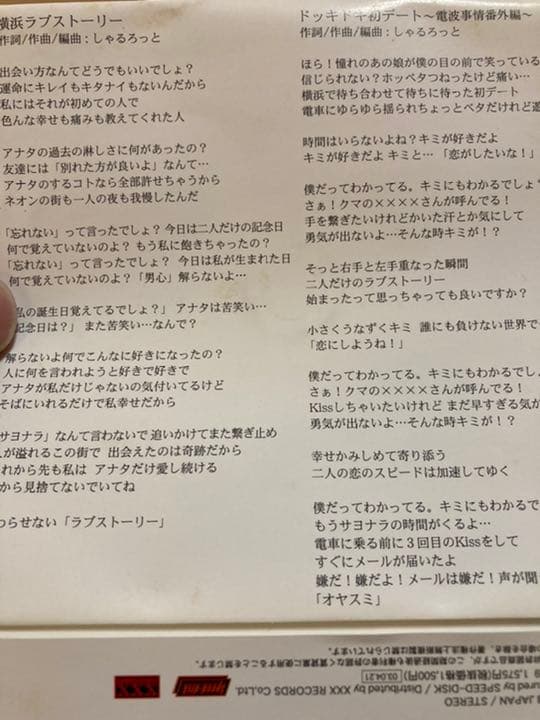 横浜ラブストーリー
作詞/作曲/編曲：しゃるろっと
出会い方なんてどうでもいいでしょ？
運命にキレイもキタナイもないんだから
私にはそれが初めての人で
色んな幸せも痛みも教えてくれた人
アナタの過去の淋しさに何があったの？
友達には「別れた方が良いよ」なんて…
アナタのするコトなら全部許せちゃうから
ネオンの街も一人の夜も我慢したんだ
「忘れない」って言ったでしょ？今日は二人だけの記念日
何で覚えていないのよ？もう私に飽きちゃったの？
「忘れない」って言ったでしょ？今日は私が生まれた日
何で覚えていないのよ？「男心」解らないよ…
私の誕生日覚えてるでしょ？」アナタは苦笑い…
記念日は？」また苦笑い…なんで？
解らないよ何でこんなに好きになったの？
人に何を言われようと好きで好きで
アナタが私だけじゃないの気付いてるけど
そばにいれるだけで私幸せだから
サヨナラ」なんて言わないで 追いかけてまた繋ぎ止め
が溢れるこの街で 出会えたのは奇跡だから
れから先も私は アナタだけ愛し続ける
から見捨てないでいてね
わらせない「ラブストーリー」
ドッキドキ初デート～電波事情番外編～
作詞/作曲/編曲：しゃるろっと
ほら！憧れのあの娘が僕の目の前で笑っている
信じられない？ホッペタつねったけど痛い…
横浜で待ち合わせて待ちに待った初デート
電車にゆらゆら揺られちょっとベタだけれど
時間はいらないよね？キミが好きだよ
キミが好きだよ キミと…「恋がしたいな！」
僕だってわかってる。キミにもわかるでしょ
さぁ！クマの××××さんが呼んでる！
手を繋ぎたいけれどかいた汗とか気にして
勇気が出ないよ…そんな時キミが！？
そっと右手と左手重なった瞬間
二人だけのラブストーリー
始まったって思っちゃっても良いですか？
小さくうなずくキミ 誰にも負けない世界で
「恋にしようね！」
僕だってわかってる。キミにもわかるでしょ
さぁ！クマの××××さんが呼んでる！
Kissしちゃいたいけれど まだ早すぎる気が
勇気が出ないよ…そんな時キミが！？
幸せかみしめて寄り添う
二人の恋のスピードは加速してゆく
僕だってわかってる。キミにもわかるで
もうサヨナラの時間がくるよ…
電車に乗る前に３回目のKissをして
すぐにメールが届いたよ
嫌だ！嫌だよ！メールは嫌だ！声が聞
「オヤスミ」
STEREO /
JAPAN
SPEED-DISK / Distributed by XXX RECORDS Co.Ltd.
1,575円(税抜価格1,500円)
03.04.21
XXX